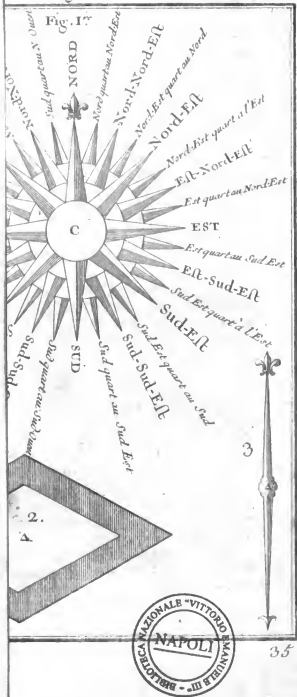 Fig. 1.re
Sud quart au N
Nord-No
NORD
Nord quart au Nord Est
Nord-Nord-Eſt
Nord Est quart au Nord
Nord-Eſt
Nord-Est quart a l'Est
Eſt-Nord-Eſt
Est quart au Nord-Est
EST
Est quart au Sud Est
Eſt-Sud-Eſt
Sud Est quart à l'Est
Sud-Eſt
Sud Est quart au Sud
Sud-Sud-Eſt
Sud quart au Sud Est
SUD
Sud quart au Sud
Sud-Sud
C
2.
A
3
BIBLIOTECA NAZIONALE "VITTORIO EMANUELE III"
NAPOLI
35